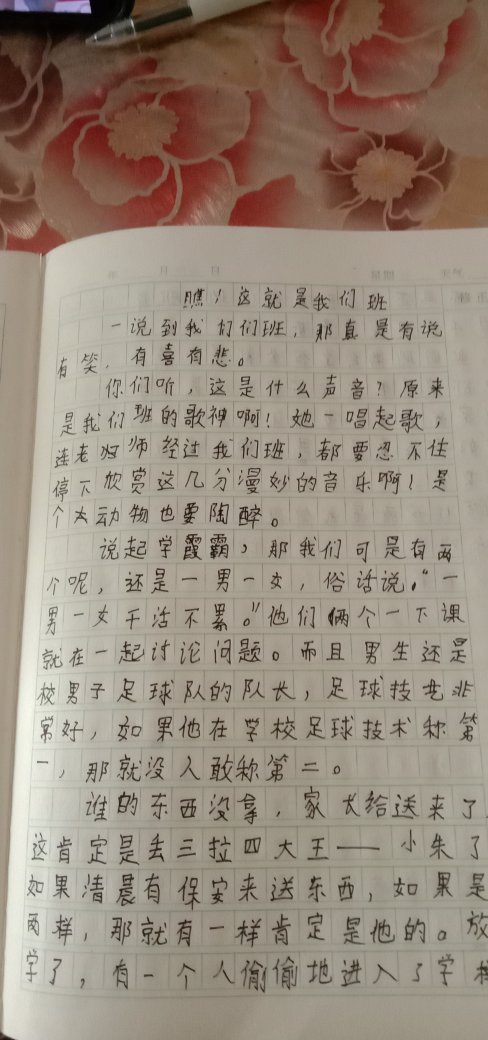 瞧！这就是我们班
一说到我们们班，那真是有说
有笑，有喜有悲。
你们听，这是什么声音？原来
是我们班的歌神啊！她一唱起歌，
连老师经过我们班，都要忍不住
停下欣赏这几分漫妙的音乐啊！是
个木动物也要陶醉。
说起学霞霸，那我们可是有两
个呢，还是一男一女，俗话说，“一
男一女干活不累。”他们俩个一下课
就在一起讨论问题。而且男生还是
校男子足球队的队长，足球技也非
常好，如果他在学校足球技术称第
一，那就没人敢称第二。
谁的东西没拿，家长给送来了，
这肯定是丢三拉四大王——小朱了
如果清晨有保安来送东西，如果是
两样，那就有一样肯定是他的。放
学了，有一个人偷偷地进入了学校
年 月 日 星期 天气